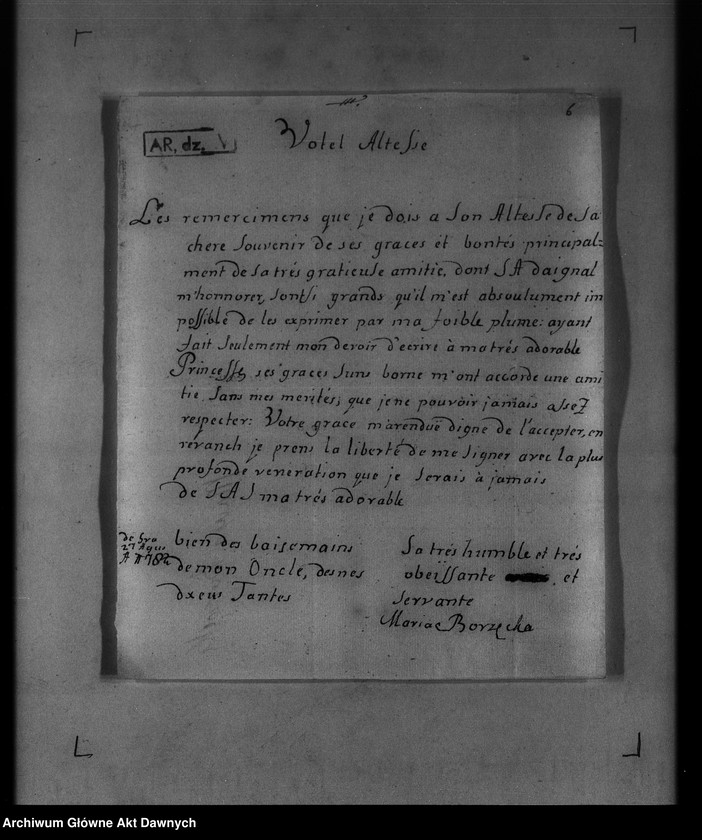 6
AR, dz. V
Votel Altesse
Les remercimens que je dois a Son Altesse de sa
chere Souvenir de ses graces et bontés principal=
ment de sa trés gratieuse amitie, dont SA daignal
m'honnorer, sontsi grands qu'il m'est absoulument im
possible de les exprimer par ma foible plume: ayant
fait seulement mon devoir d'ecrire à ma trés adorable
Princesse, ses graces suns borne m'ont accorde une ami
tie, sans mes merités, que jene pouvoir jamais assez
respecter: Votre grace m'arenduë digne de l'accepter, en
révanch je prens la liberté de me signer avec la plus
profonde veneration que je serais à jamais
de SAS ma trés adorable
bien des baisemains
demon Oncle, desnes
dxeus Tantes
de Gro
27 Agus
Sa trés humble et trés
obeissante et
servante
Mariae Borzęcka
Archiwum Główne Akt Dawnych